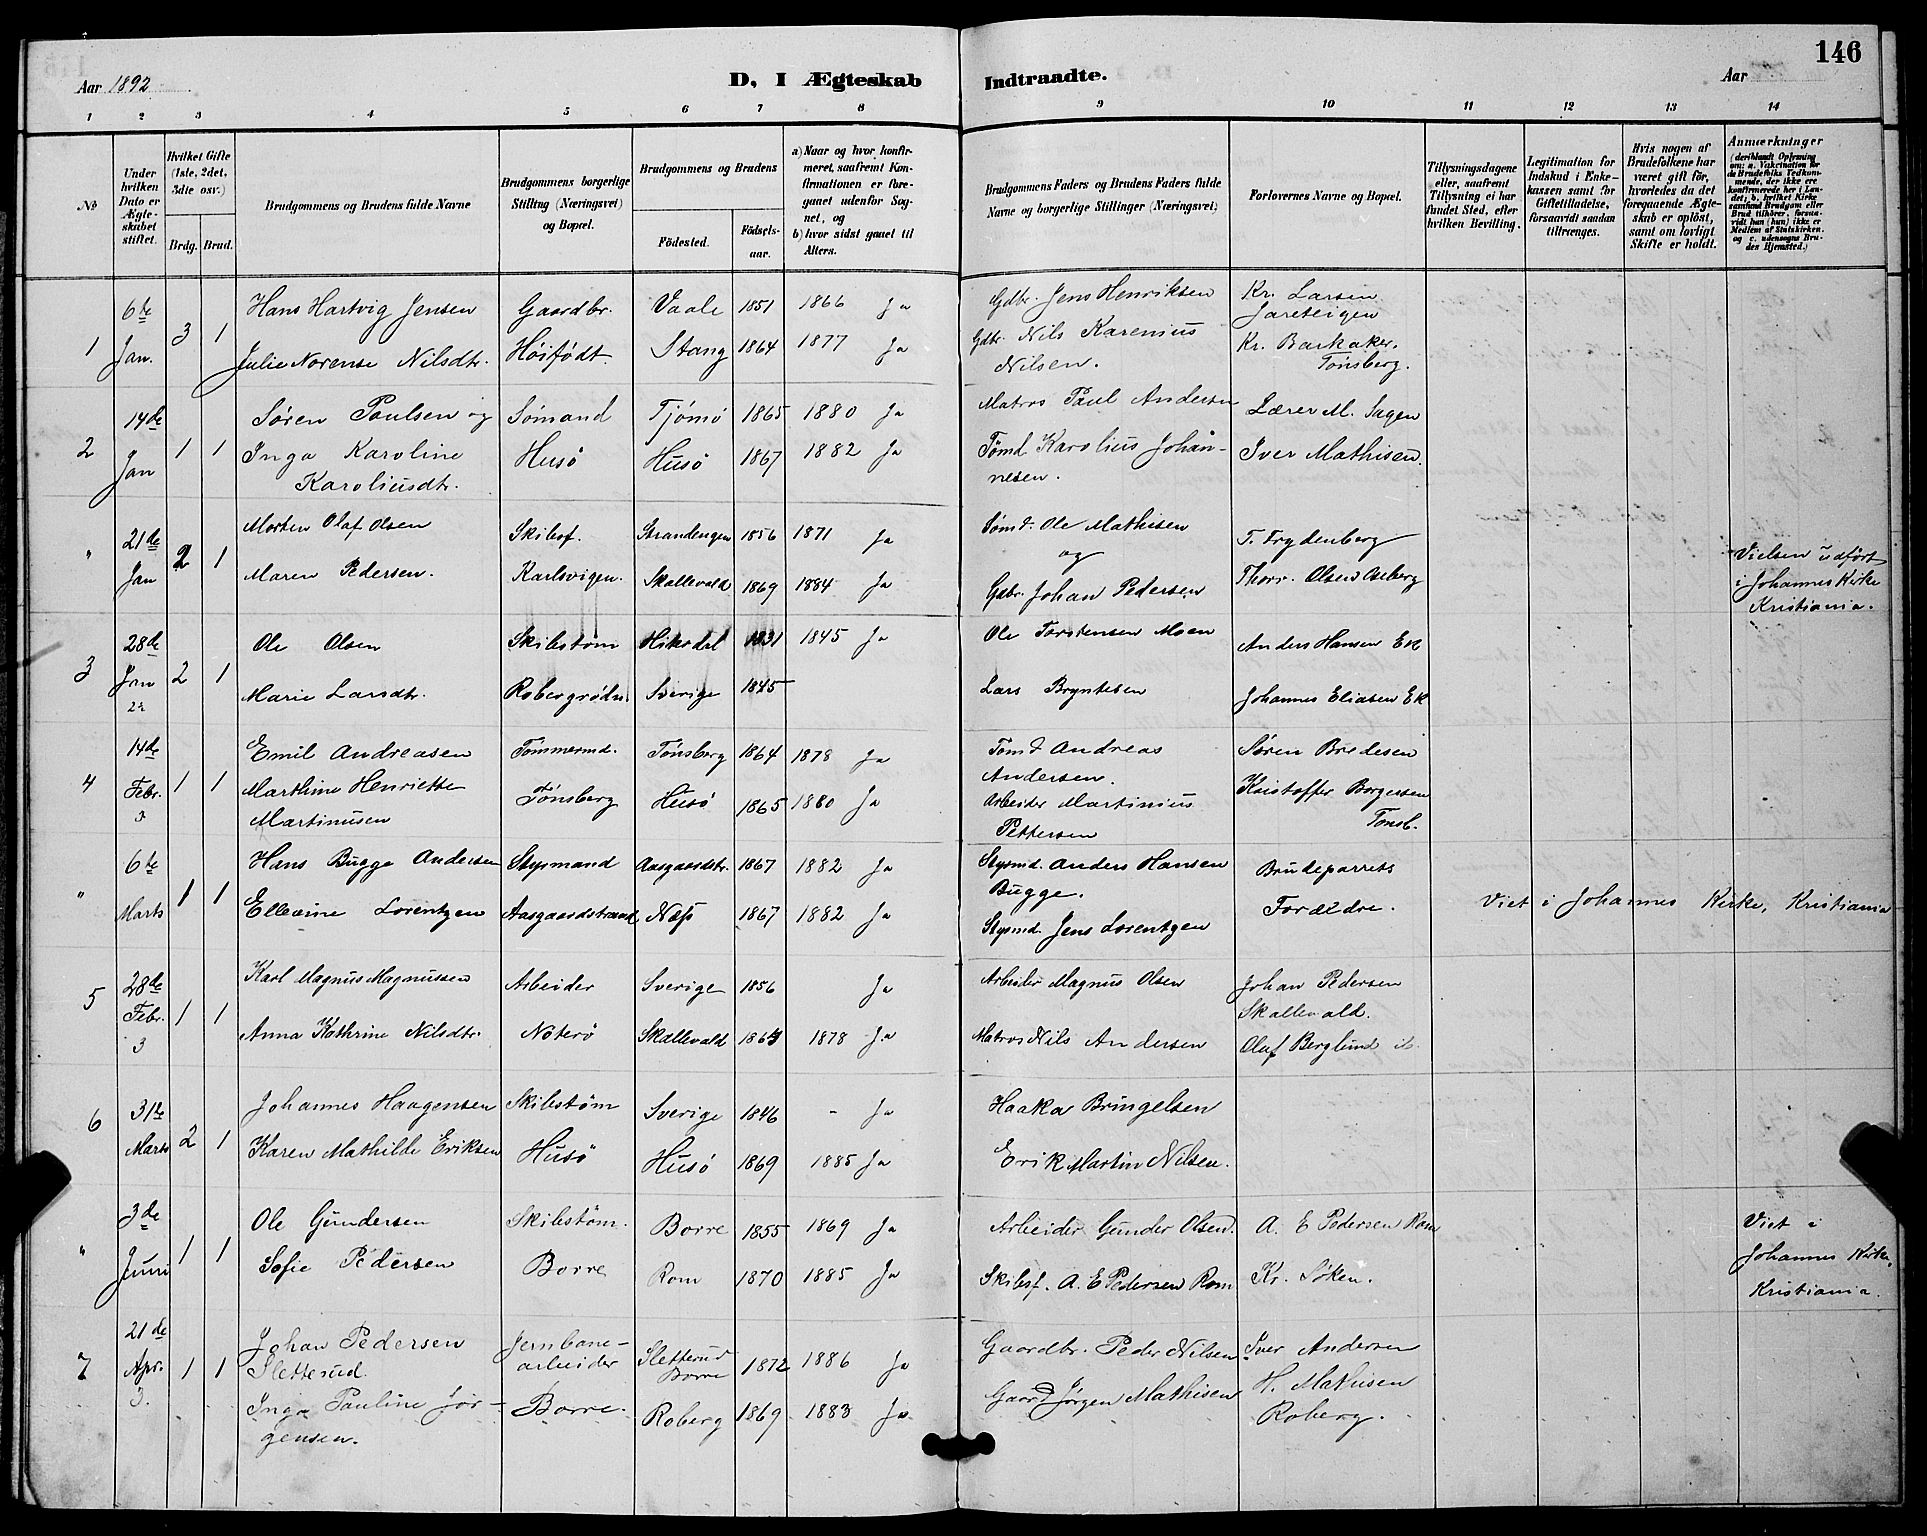 146
Aar 1892
D, I Ægteskab
Indtraadte.
Aar
1 2 3 4 5 6 7 8 9 10 11 12 13 14
No
Under hvilken Dato er Ægteskabet stiftet.
Hvilket Gifte (1ste, 2det, 3die osv.)
Brdg. Brud.
Brudgommens og Brudens fulde Navne
Brudgommens borgerlige Stilling (Næringsvei) og Bopæl.
Brudgommens og Brudens
Fødested.
Fødselsaar.
a) Naar og hvor konfirmeret, saafremt Konfirmationen er foregaaet udenfor Sognet, og
b) hvor sidst gaaet til Alters.
Brudgommens Faders og Brudens Faders fulde Navne og borgerlige Stillinger (Næringsvei)
Forlovernes Navne og Bopæl.
Tillysningsdagene eller, saafremt Tillysning ei har fundet Sted, efter hvilken Bevilling.
Legitimation for Indskud i Enkekassen samt for Giftetilladelse, forsaavidt saadan tiltrænges.
Hvis nogen af Brudefolkene har været gift før, hvorledes da det foregaaende Ægteskab er opløst, samt om lovligt Skifte er holdt.
Anmærkninger
(deriblandt Oplysning om: a. Vakcination for de Brudefolks Vedkommende, der ikke ere konfirmerede her i Landet; b. hvilket Kirkesamfund Brudgom eller Brud tilhører, forsaavidt han (hun) ikke er Medlem af Statskirken, og c. udensogns Brudes Hjemsted.)
1 6te Jan. 3 1
Hans Hartvig Jensen Gaardbr. Vaale 1851 1866 Ja Gdbr. Jens Henriksen Kr. Larsen Jareteigen
Julie Norense Nilsdtr. Höifødt Stang 1864 1877 Ja Gdbr. Nils Karenius Nilsen. Kr. Barkaker. Tønsberg.
2 14de Jan 1 1
Søren Paulsen og Sömand Tjömö 1865 1880 Ja Matros Paul Andersen Lærer M. Sagen
Inga Karoline Karoliusdtr. Husö Husö 1867 1882 Ja Tømd Karolius Johannesen. Iver Mathisen
" 21de Jan 2 1
Morten Olaf Olsen Skibsf. Strandengen 1856 1871 Ja Sømd. Ole Mathisen og T. Frydenberg
Maren Pedersen. Karlsvigen. Skallevald 1869 1884 Ja Gdbr. Johan Pedersen Thorv. Olsen Oseberg
Vielsen udført i Johannes Kirke Kristiania.
3 28de Jan 2 1
Ole Olsen Skibstøm Hiterdal 1831 1845 Ja Ole Torstensen Moen Anders Hansen Ek
Marie Larsdtr. Robergrødn. Sverige 1845 Lars Bryntesen Johannes Eliasen Ek
4 14de Febr. 3 1 1
Emil Andreasen Tömmermd. Tönsberg 1864 1878 Ja Tømd Andreas Andersen. Søren Bredesen
Marthine Henriette Martinusen Tönsberg Husö 1865 1880 Ja Arbeider Martinius Pettersen Kristoffer Borgersen Tønsb.
" 6te Marts 1 1
Hans Bugge Andersen Stysmand Aasgaardstr. 1867 1882 Ja Stysmd. Anders Hansen Bugge. Brudeparrets
Ellevine Lorentzen Aasgaardstrand Næs 1867 1882 Ja Stysmd. Jens Lorentzen Forældre. Viet i Johannes Kirke, Kristiania
5 28de Febr. 3 1 1
Karl Magnus Magnussen Arbeider Sverige 1856 Ja Arbeider Magnus Olsen Johan Pedersen Skallevald.
Anna Kathrine Nilsdtr. Noterö Skallevald 1863 1878 Ja Matros Nils Andersen Oluf Berglund ib.
6 31te Marts 2 1
Johannes Haagensen Skibstøm Sverige 1846 - Ja Haaka Bringelsen
Karen Mathilde Eriksen Husö Husö 1869 1885 Ja Erik Martin Nilsen.
" 3de Juni 1 1
Ole Gundersen Skibstøm. Borre 1855 1869 Ja Arbeider Gunder Olsen. A. E Pedersen Rom
Sofie Pedersen Borre Rom 1870 1885 Ja Skibsf. A. E Pedersen Rom Kr. Söken.
Viet i Johannes Kirke, Kristiania.
7 21de Apr. 3. 1 1
Johan Pedersen Sletterud. Jernbanearbeider Sletterud Borre 1872 1886 Ja Gaardbr. Peder Nilsen Iver Andersen
Inga Pauline Jörgensen. Borre. Roberg 1869 1883 Ja Gaard Jörgen Mathisen H. Mathisen Roberg.